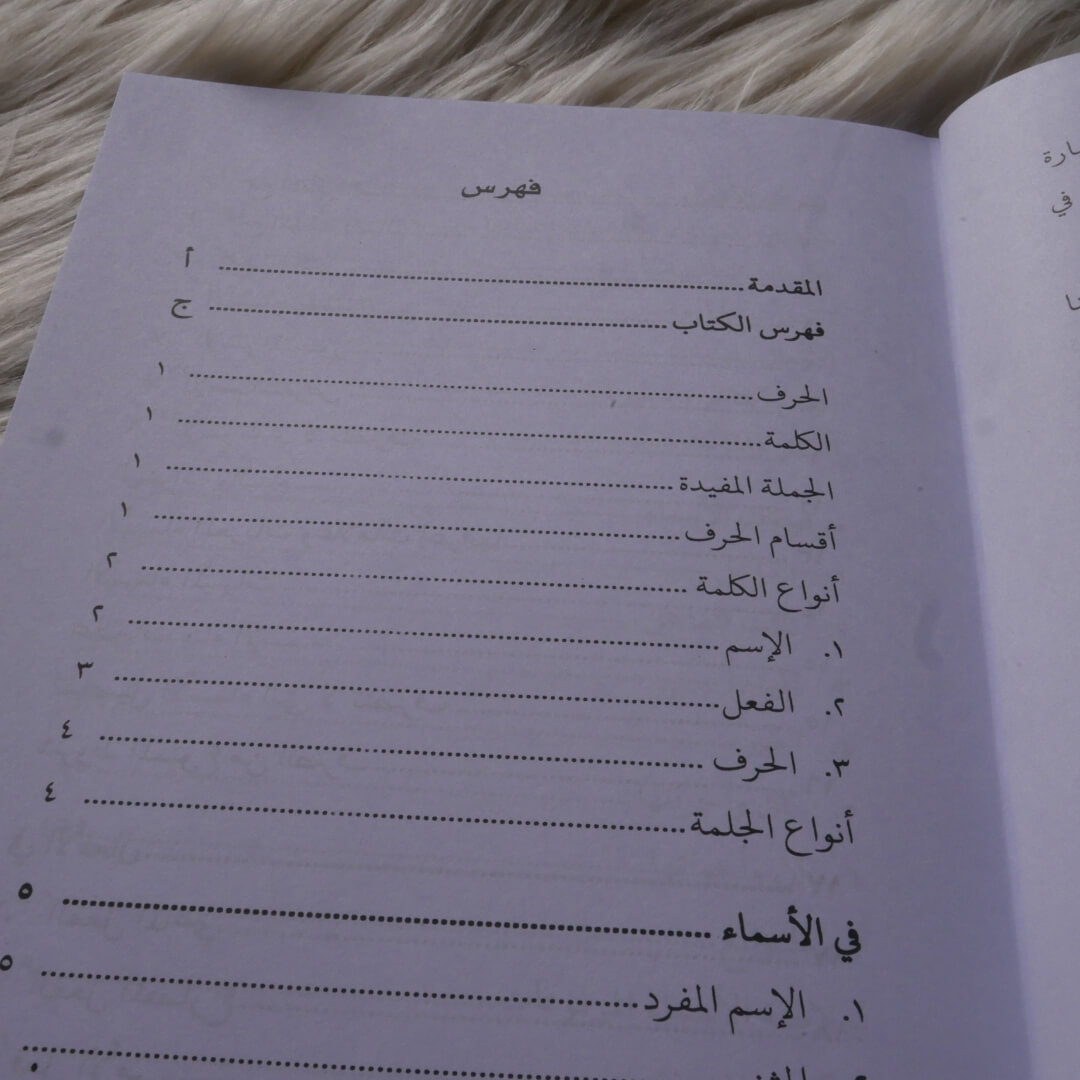 فهرس
المقدمة ........ أ
فهرس الكتاب ........ ج
الحرف ........ ١
الكلمة ........ ١
الجملة المفيدة ........ ١
أقسام الحرف ........ ١
أنواع الكلمة ........ ٢
١. الإسم ........ ٢
٢. الفعل ........ ٣
٣. الحرف ........ ٤
أنواع الجلمة ........ ٤
في الأسماء ........ ٥
١. الإسم المفرد ........ ٥
في